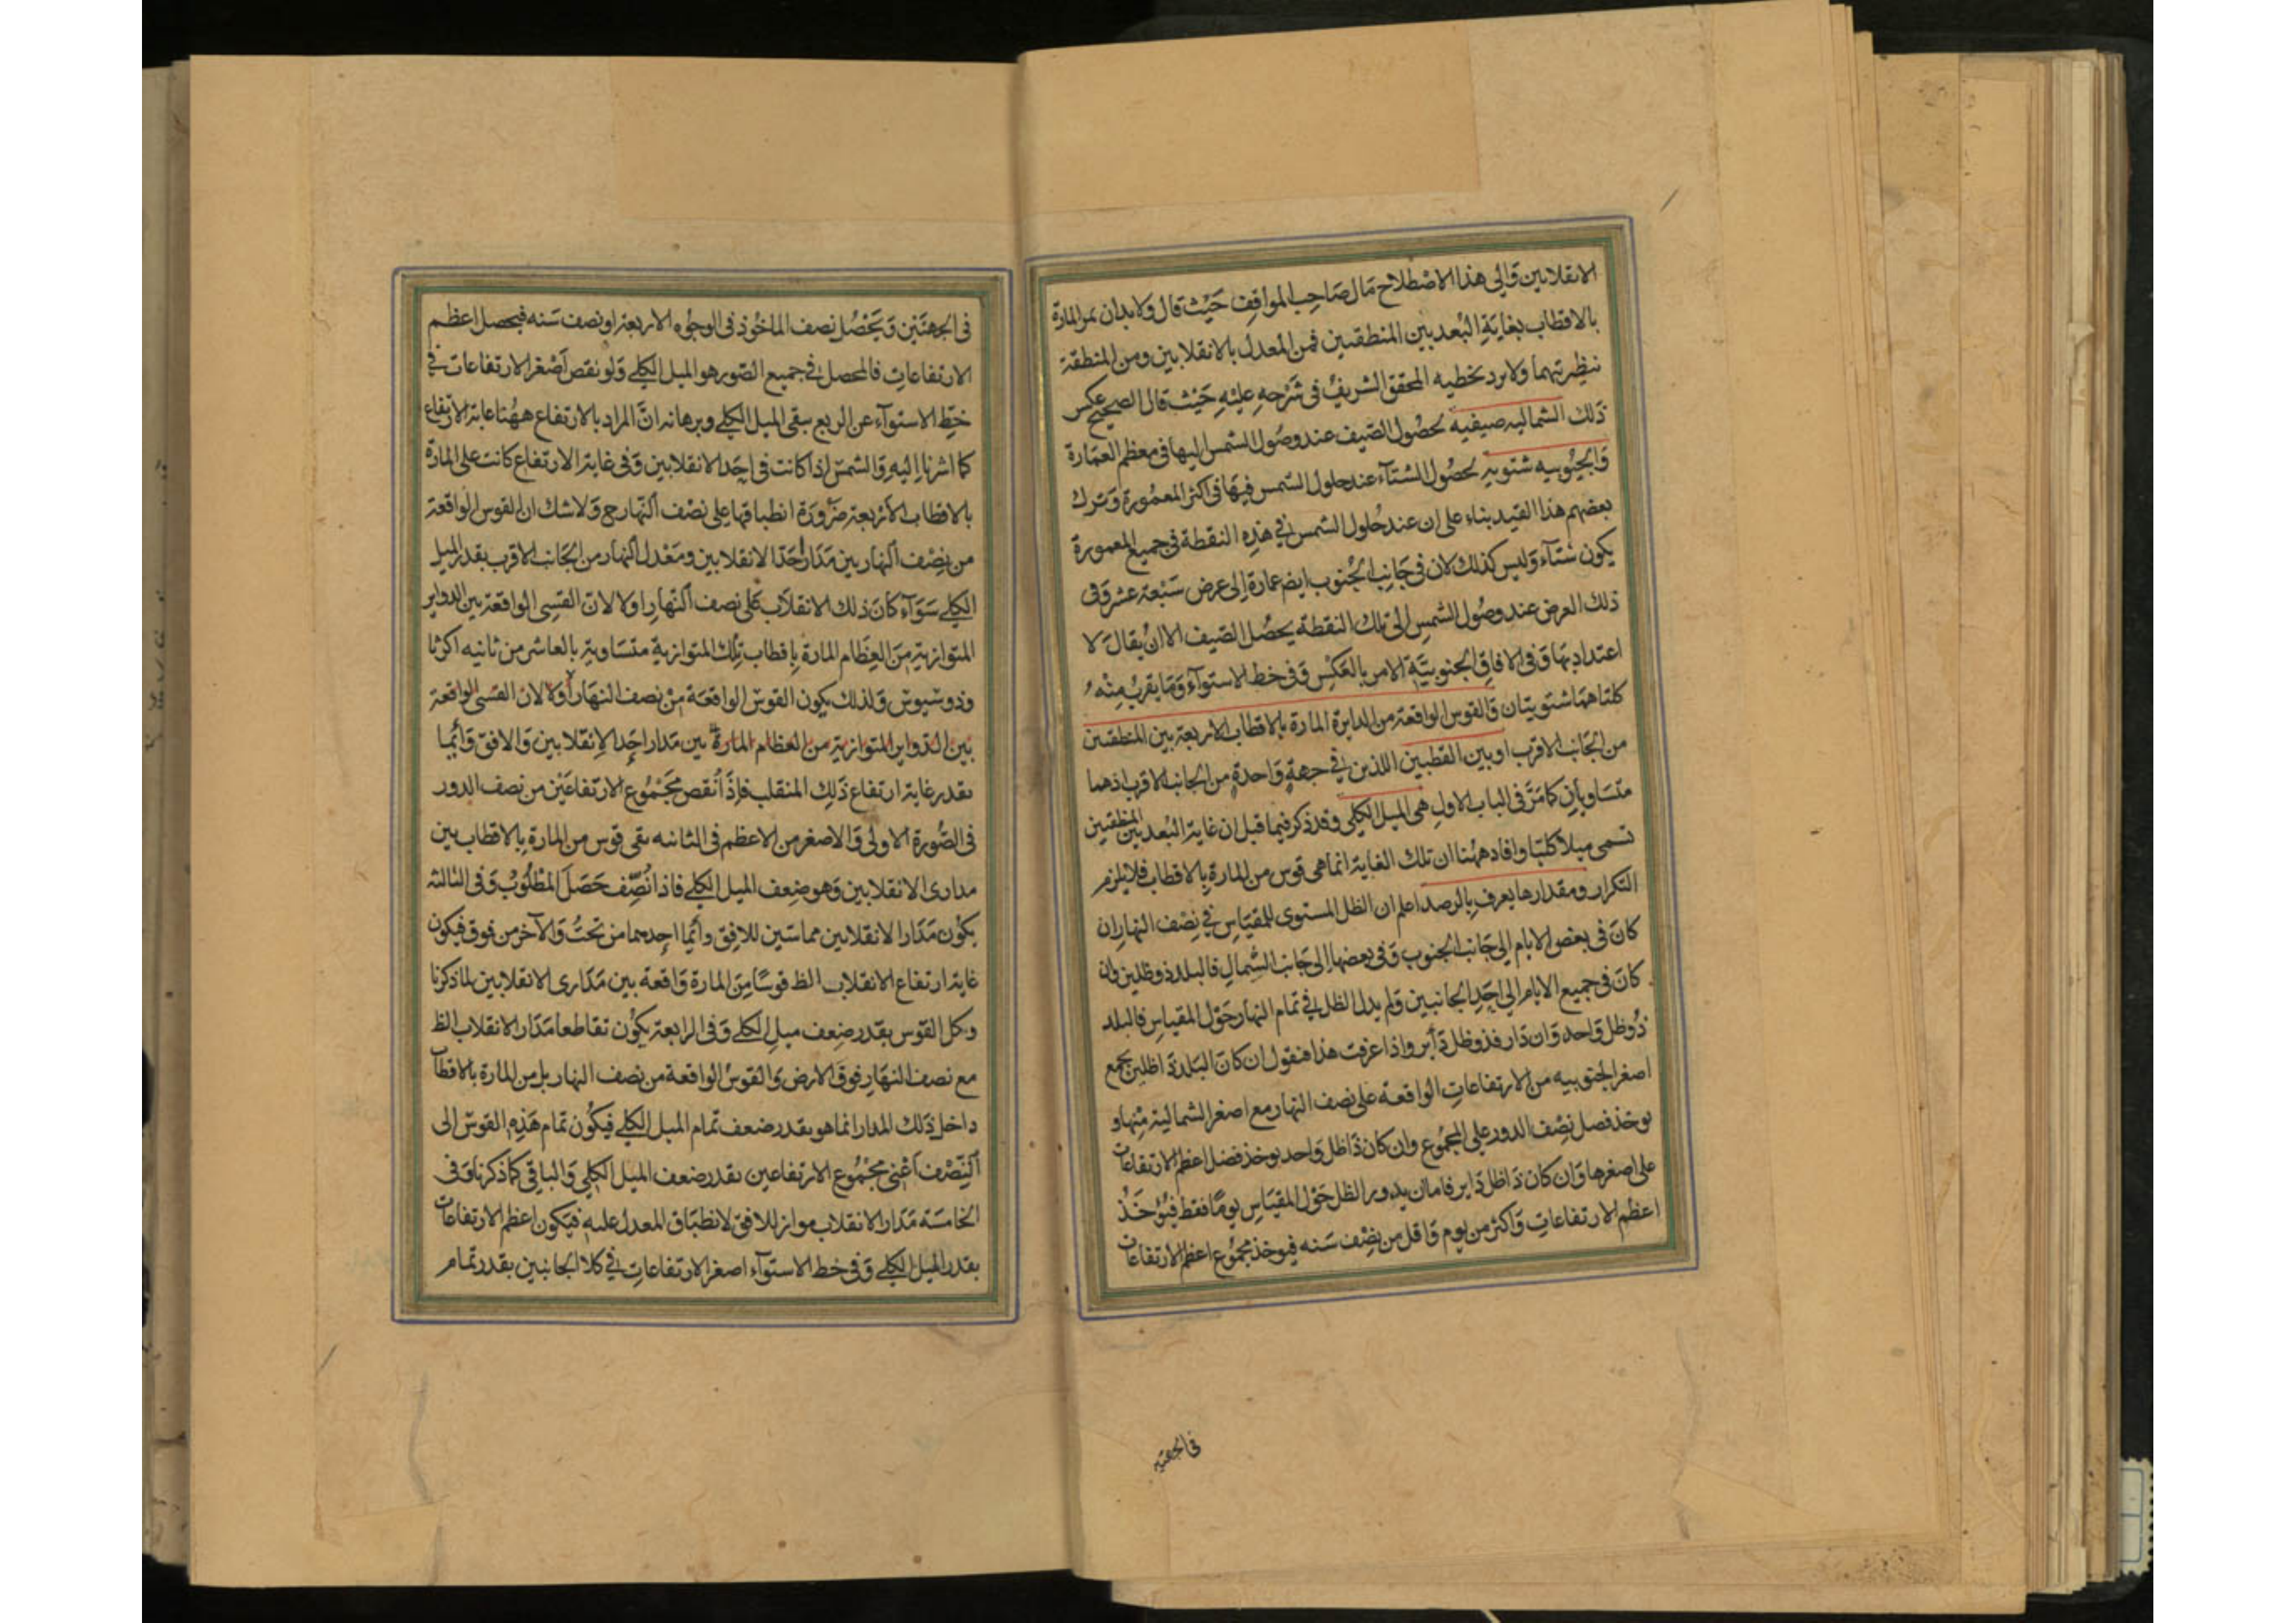 الانقلابين وَالى هذا الاصْطلاح مَال صَاحِب المواقفِ حَيْث قال ولا بد ان يمر المارة
بالاقطاب بغايَةِ البُعد بين المنطقتين فمن المعدل بالانقلابين ومن المنطقة
بنظيرتهما ولا يرد تخطيه المحقق الشريفُ فى شَرْحِهِ عليْهِ حَيْث قال الصحيح عكس
ذَلك الشماليه صيفيه لحصُول الصّيف عند وصُول الشمس اليها فى معظم العمَارة
وَالجنُوبيه شتويه لحصُول الشتآء عند حلول الشمس فيهَا فى اكثر المعمُورة وَترك
بعضهم هذا القيد بناء على ان عند حُلول الشمس فى هذِهِ النقطة فى جميع المعمورة
يكون شتآء وَليس كذلك لان فى جَانِب الجُنوب ايضا عمارة إلى عرض سَبْعة عشر وَفى
ذلك العرض عند وصُول الشمس الى تلك النقطة يحصُل الصّيف الا ان يُقال لا
اعتداد بها وَفى الافاقِ الجنوبيَّة الامر بالعَكس وَفى خط الاستوآء وَمَا يقرب مِنْهُ
كلتاهمَا شتويتان وَالقوس الواقعة من الدايرة المارة بالاقطاب الاربعة بين المنطقتين
من الجَانب الاقرب او بين القطبين اللذين فى جهةٍ وَاحدةٍ من الجانب الاقرب اذ هما
متسَاويان كما مَرَّ فى الباب الاول هى الميل الكلى وقد ذكر فيما قبل ان غاية البُعد بين المنطقتين
تسمى ميلا كليّا وافاد ههُنا ان تلك الغاية انما هى قوس من المارة بالاقطاب فلا يلزم
التكرار ومقدارها يعرف بالرصد اعلم ان الظل المستوى للمقيَاس فى نِصْف النهار ان
كانَ فى بعض الايام الى جَانب الجنوب وَفى بعضها الى جَانب الشّمالِ فالبلد ذو ظلين وان
كانَ فى جميع الايام الى احَدِ الجانبين وَلم يدر الظل فى تمام النهار حَوْل المقياس فالبلد
ذُو ظل وَاحد وَان دَار فذو ظل دَاير واذا عرفت هذا فنقول ان كانَ البَلد ذا ظلين يجمع
اصغر الجنوبيه من الارتفاعاتِ الواقعة على نصف النهار مع اصغر الشمالية مِنْها و
يوخذ فصل نِصْف الدور على المجمُوع وان كان ذَا ظل وَاحد يوخذ فضل اعظم الارتفاعات
على اصغرها وَان كان ذَا ظل دَاير فاما ان يدور الظل حَوْل المقيَاس يومًا فقط فيُوْخَذُ
اعظمُ الارتفاعاتِ وَاكثر من يوم وَاقل من نِصْف سَنه فيوخذ مجمُوع اعظم الارتفاعات
فى الجهتين
فى الجهتَيْن وَيَحْصُل نِصف الماخُوذ فى الوجُوه الاربعة او نصف سَنه فيحصل اعظم
الارتفاعاتِ فالمحصل فى جميع الصّور هو الميل الكلى وَلو نقص اَصْغر الارتفاعات فى
خطِّ الاستوآء عن الربع يبقى الميل الكلى وبرهانه انَّ المراد بالارتفاع ههُنا غاية الارتفاع
كما اشرنا اليهِ وَالشمسْ اذا كانت فى اِحَد الانقلابين وَفى غاية الارتفاع كانت على المارة
بالاقطاب الاَرْبعة ضَرُورَة انطباقها على نصْف النّهار ح وَلا شك ان القوس الواقعة
من نِصْف النهار بين مَدَار اَحَد الانقلابين ومَعْدل النهار من الجَانب الاقرب بقدر الميل
الكلى سَوَآء كانَ ذلك الانقلاَب عَلى نصف النّهار او لا لان القسى الواقعة بين الدواير
المتوازيةِ مِنَ العِظَام المارة باقطاب تِلْك المتوازية متسَاوية بالعاشر من ثانيه اكرثا
وذوسيوس وَلذلك يكون القوسْ الواقعَة مِنْ نصف النهَار اَوْلا لان القسى الواقعة
بين الدواير المتوازية من العظام المارة بين مَدَار احَدِ الانقلابين وَالافق دَآئما
بقدر غاية ارتفاع ذلِك المنقلب فاِذَا نُقص مَجْمُوع الارتفاعَيْن من نصف الدور
فى الصُّورة الاولى وَالاصغر من الاعظم فى الثانيه بقى قوس من المارة بالاقطاب بين
مدارى الانقلابين وَهو ضِعف الميل الكلى فاذا نُصِّف حَصَلَ المطلُوبْ وَفى الثالثه
يكُون مَدَارا الانقلابين مماسّين للافق دائما احدهما من تحتُ وَالآخر من فوق فيكون
غاية ارتفاع الانقلاب الظ قوسًا مِنَ المارة وَاقعة بين مَدَارى الانقلابين لما ذكرنا
وكل القوس بقدر ضِعف ميلِ الكلى وَفى الرابعة يكُون تقاطعا مَدَار الانقلاب الظ
مع نصف النهَار فوق الارض وَالقوسُ الواقعة من نصف النهار بل من المارة بالاقطاب
داخل ذَلك المدار انما هو بقدر ضعف تمام الميل الكلى فيكُون تمام هَذِهِ القوسْ الى
النِّصْف اَعْنى مَجْمُوع الارتفاعين بقدر ضعف الميل الكلى وَالباقى كما ذكرنا وَفى
الخامسَة مَدَار الانقلاب مواز للافق لانطبَاق المعدل عليه فيكون اعظم الارتفاعات
بقدر الميل الكلى وَفى خط الاستوآء اصغر الارتفاعاتِ فى كلا الجَانبين بقدر تمام